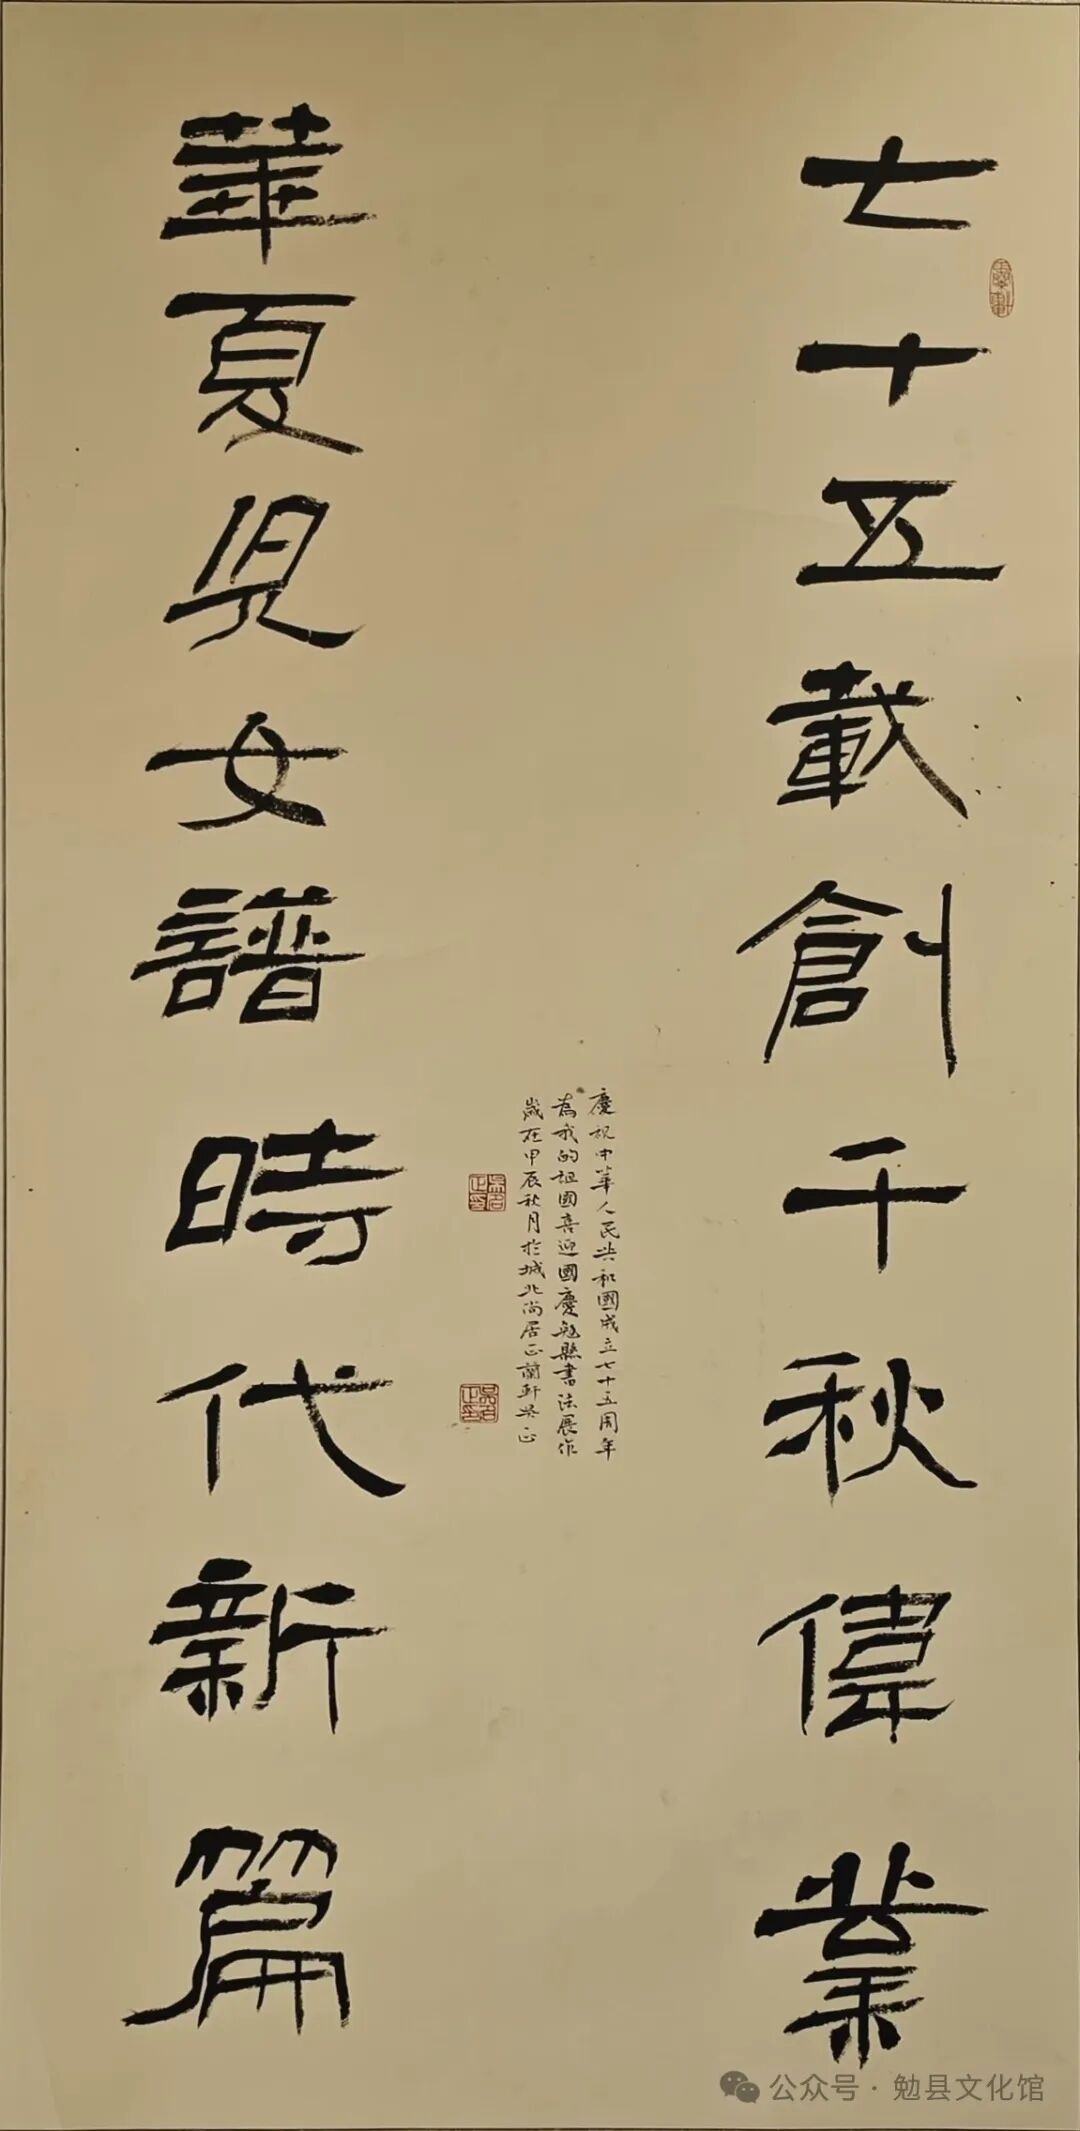 七十五載創千秋偉業
華夏兒女譜時代新篇
慶祝中華人民共和國成立七十五周年
為我的祖國喜迎國慶勉縣書法展作
歲在甲辰秋月於城北尚居正蘭軒吳正
公众号·勉县文化馆